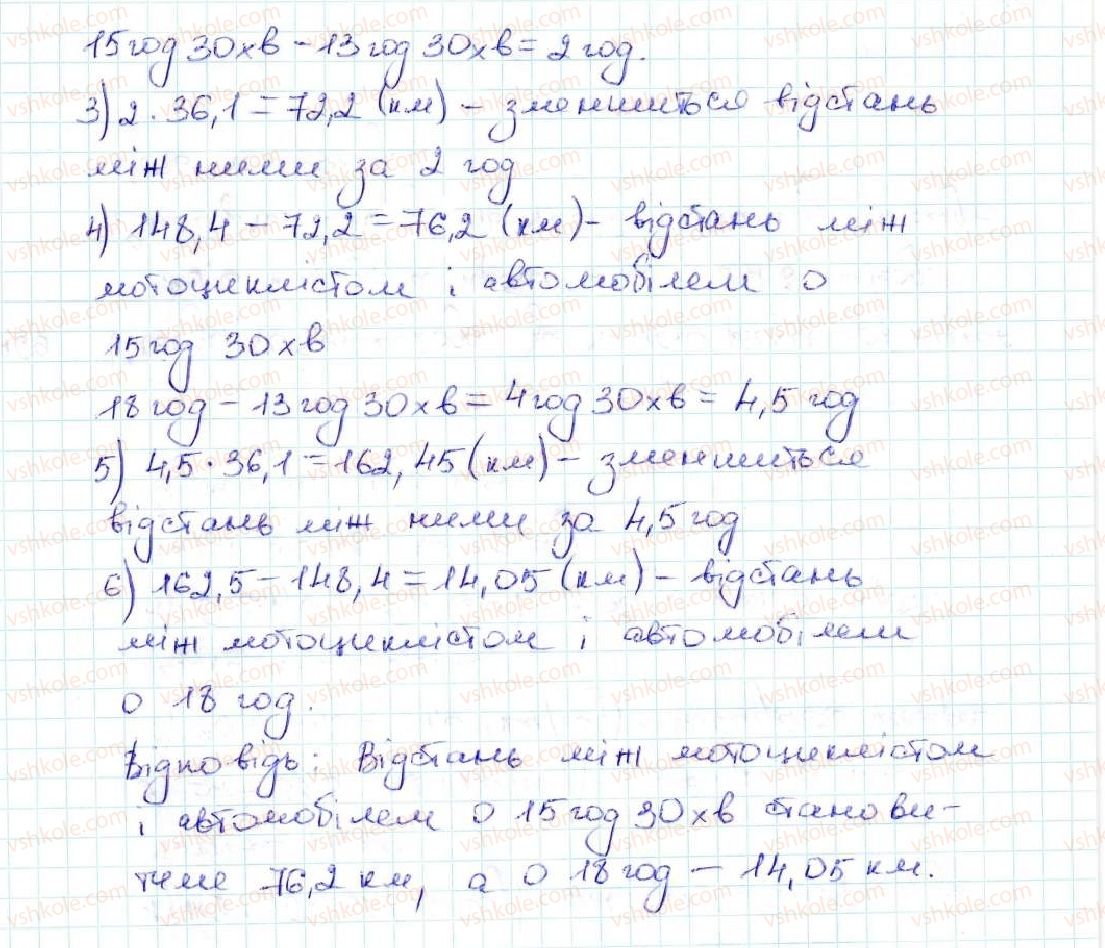 15 год 30 хв - 13 год 30 хв = 2 год.
3) 2 · 36,1 = 72,2 (км) - зменшиться відстань
між ними за 2 год
4) 148,4 - 72,2 = 76,2 (км) - відстань між
мотоциклістом і автомобілем о
15 год 30 хв
18 год - 13 год 30 хв = 4 год 30 хв = 4,5 год
5) 4,5 · 36,1 = 162,45 (км) - зменшиться
відстань між ними за 4,5 год
6) 162,5 - 148,4 = 14,05 (км) - відстань
між мотоциклістом і автомобілем
о 18 год.
Відповідь: Відстань між мотоциклістом
і автомобілем о 15 год 30 хв станови-
тиме 76,2 км, а о 18 год - 14,05 км.
vshkole.com